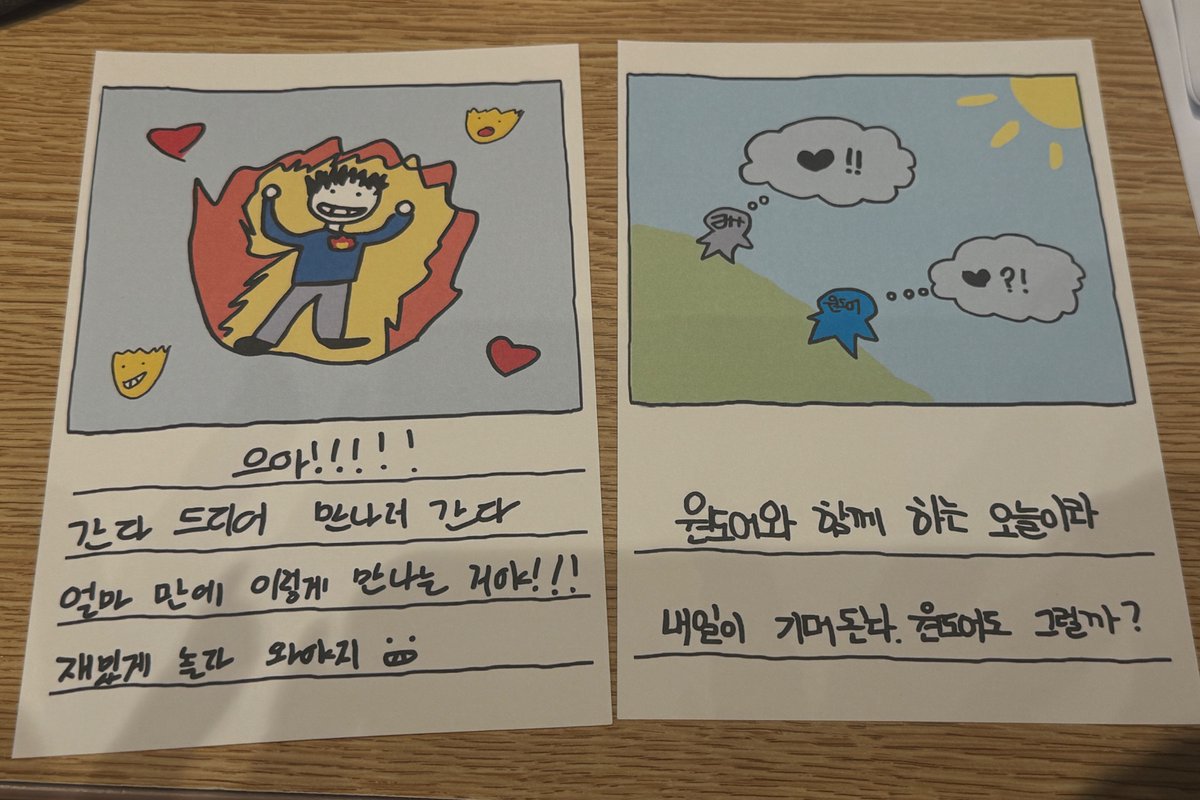 으아!!!!!
간다 드디어 만나러 간다
얼마 만에 이렇게 만나는 거야!!!
재밌게 놀다 와야지
!!
?!
원도어
원도어와 함께 하는 오늘이라
내일이 기대된다. 원도어도 그럴까?